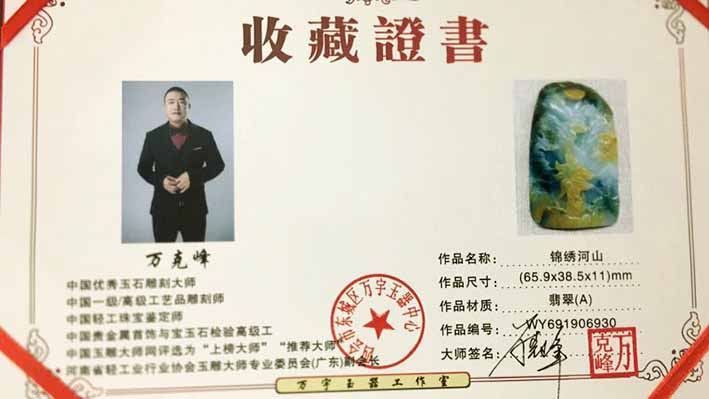 收藏證書
万克峰
中国优秀玉石雕刻大师
中国一级/高级工艺品雕刻师
中国轻工珠宝鉴定师
中国贵金属首饰与宝玉石检验高级工
中国玉雕大师网评选为“上榜大师”“推荐大师”
河南省轻工业行业协会玉雕大师专业委员会(广东)副会长
作品名称：锦绣河山
作品尺寸：(65.9x38.5x11)mm
作品材质：翡翠(A)
作品编号：WY691906930
大师签名：
万克峰
市东城区万字玉器中心
万字玉器工作室